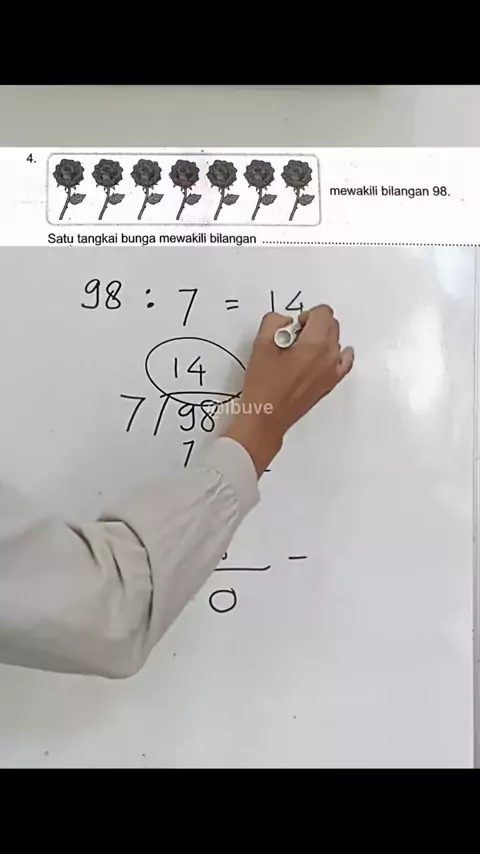 4.
mewakili bilangan 98.
Satu tangkai bunga mewakili bilangan ........................................
98 : 7 = 14
14
7 / 98
@ibuve
7
0